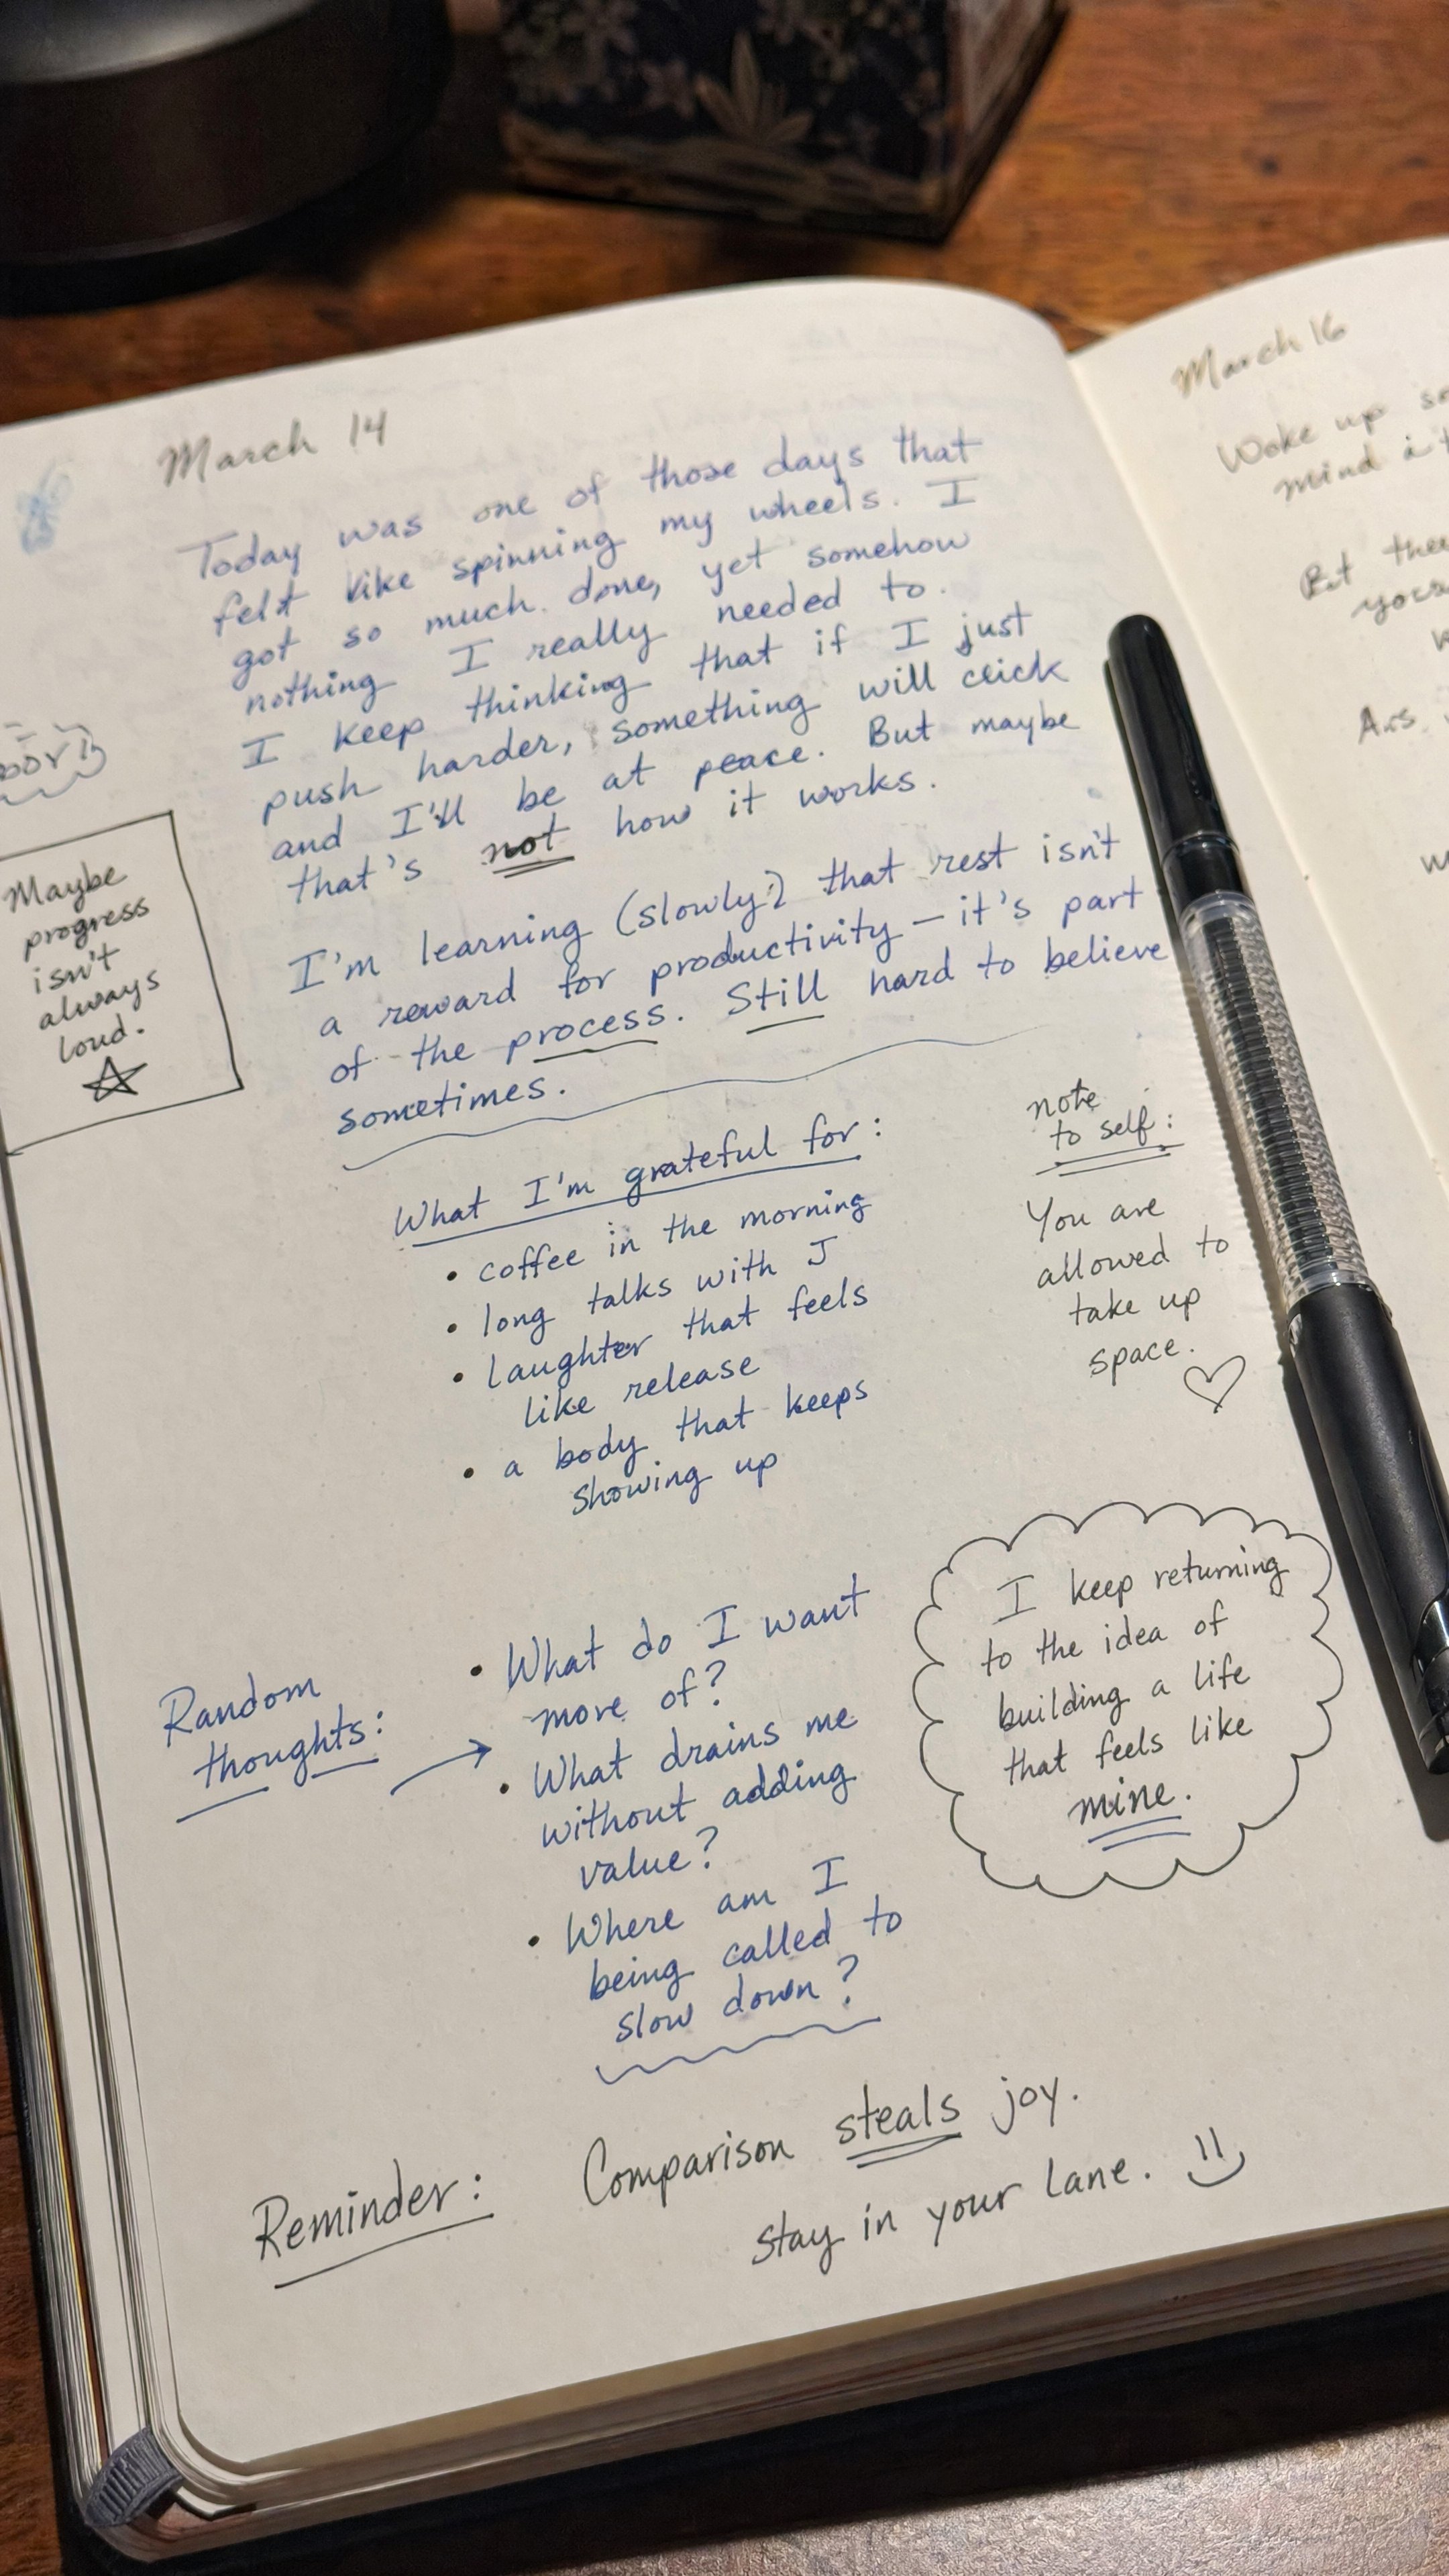 March 14
Today was one of those days that
felt like spinning my wheels. I
got so much done, yet somehow
nothing I really needed to.
I keep thinking that if I just
push harder, something will click
and I'll be at peace. But maybe
that's not how it works.
I'm learning (slowly?) that rest isn't
a reward for productivity — it's part
of the process. Still hard to believe
sometimes.
Maybe
progress
isn't
always
loud.
What I'm grateful for:
• coffee in the morning
• long talks with J
• laughter that feels
like release
• a body that keeps
showing up
note
to self:
You are
allowed to
take up
space.
Random
thoughts:
• What do I want
more of?
• What drains me
without adding
value?
• Where am I
being called to
slow down?
I keep returning
to the idea of
building a life
that feels like
mine.
Reminder: Comparison steals joy.
stay in your lane.
March 16
Woke up
mind